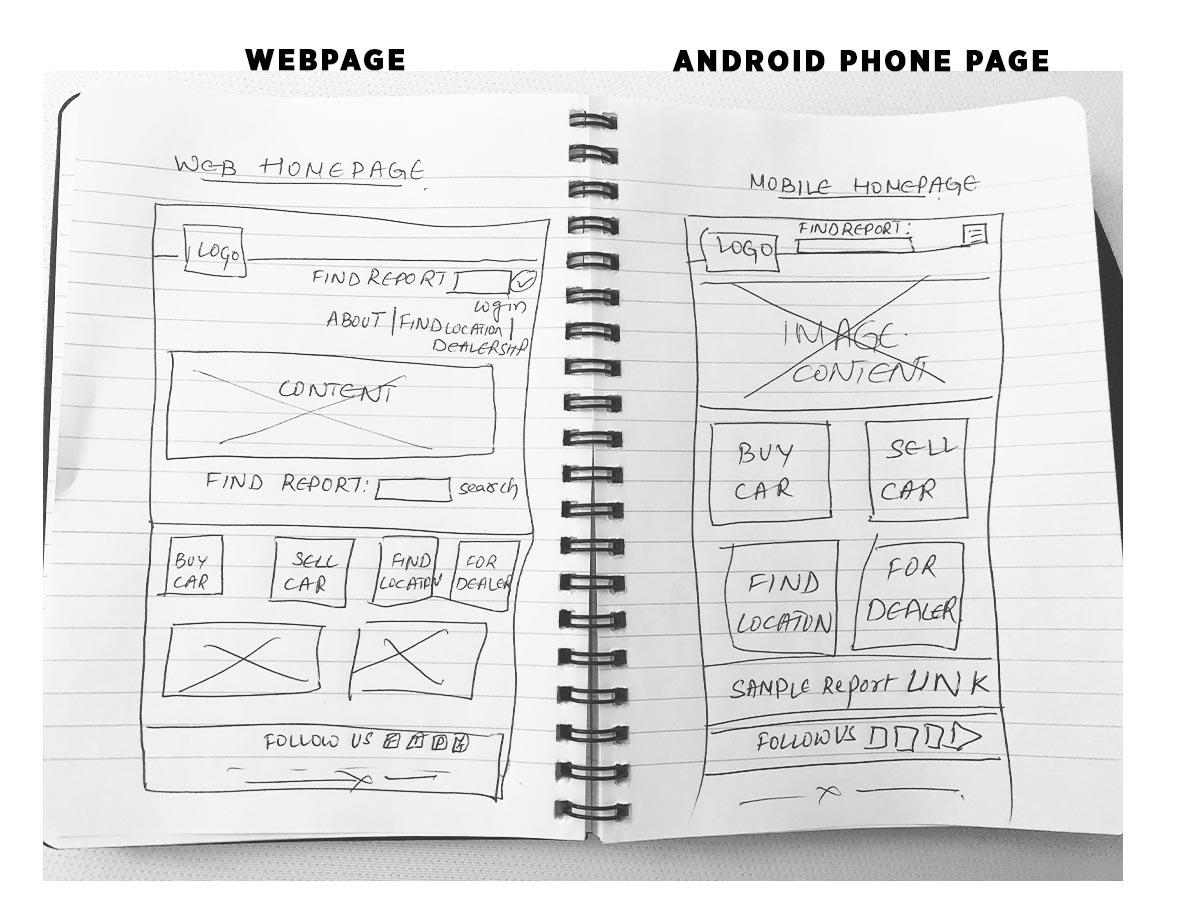 WEBPAGE
ANDROID PHONE PAGE
WEB HOMEPAGE
LOGO
FIND REPORT
Login
ABOUT | FIND LOCATION |
DEALERSHP
CONTENT
FIND REPORT: search
BUY
CAR
SELL
CAR
FIND
LOCATION
FOR
DEALER
FOLLOW US
MOBILE HOMEPAGE
LOGO
FIND REPORT:
IMAGE
CONTENT
BUY
CAR
SELL
CAR
FIND
LOCATION
FOR
DEALER
SAMPLE Report LINK
FOLLOW US